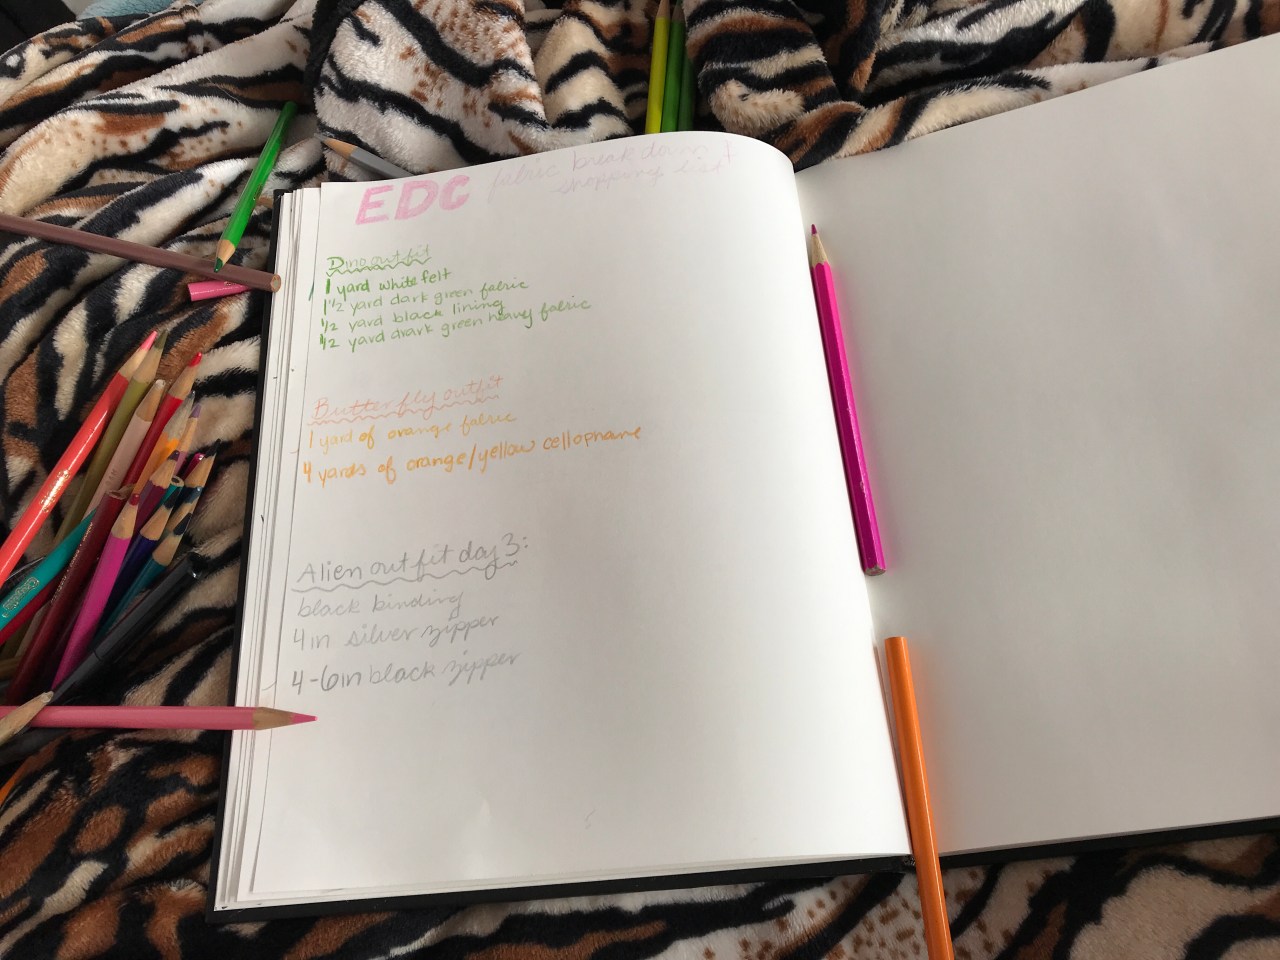 EDC fabric breakdown +
shopping list
Dino outfit
1 yard white felt
1 1/2 yard dark green fabric
1/2 yard black lining
1/2 yard drark green heavy fabric
Butterfly outfit
1 yard of orange fabric
4 yards of orange/yellow cellophane
Alien outfit day 3:
black binding
4in silver zipper
4-6in black zipper